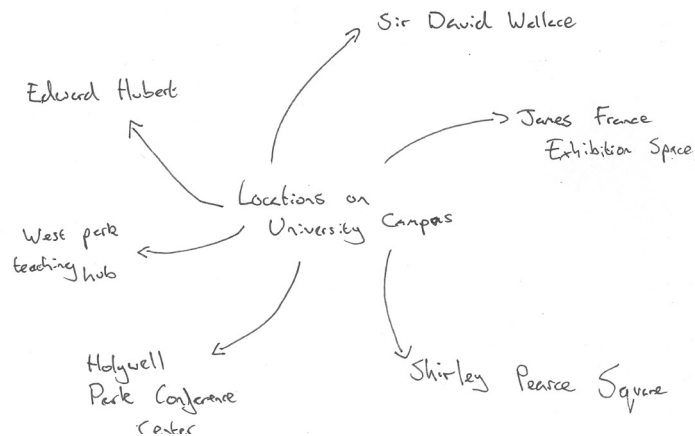 Sir David Wallace
Edward Hubert
James France
Exhibition Space
Locations on
University Campus
West park
teaching hub
Holywell
Park Conference
Center
Shirley Pearce Square